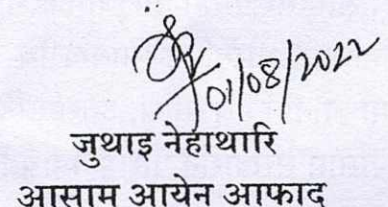 01/08/2022
जुथाइ नेहाथारि
आसाम आयेन आफाद